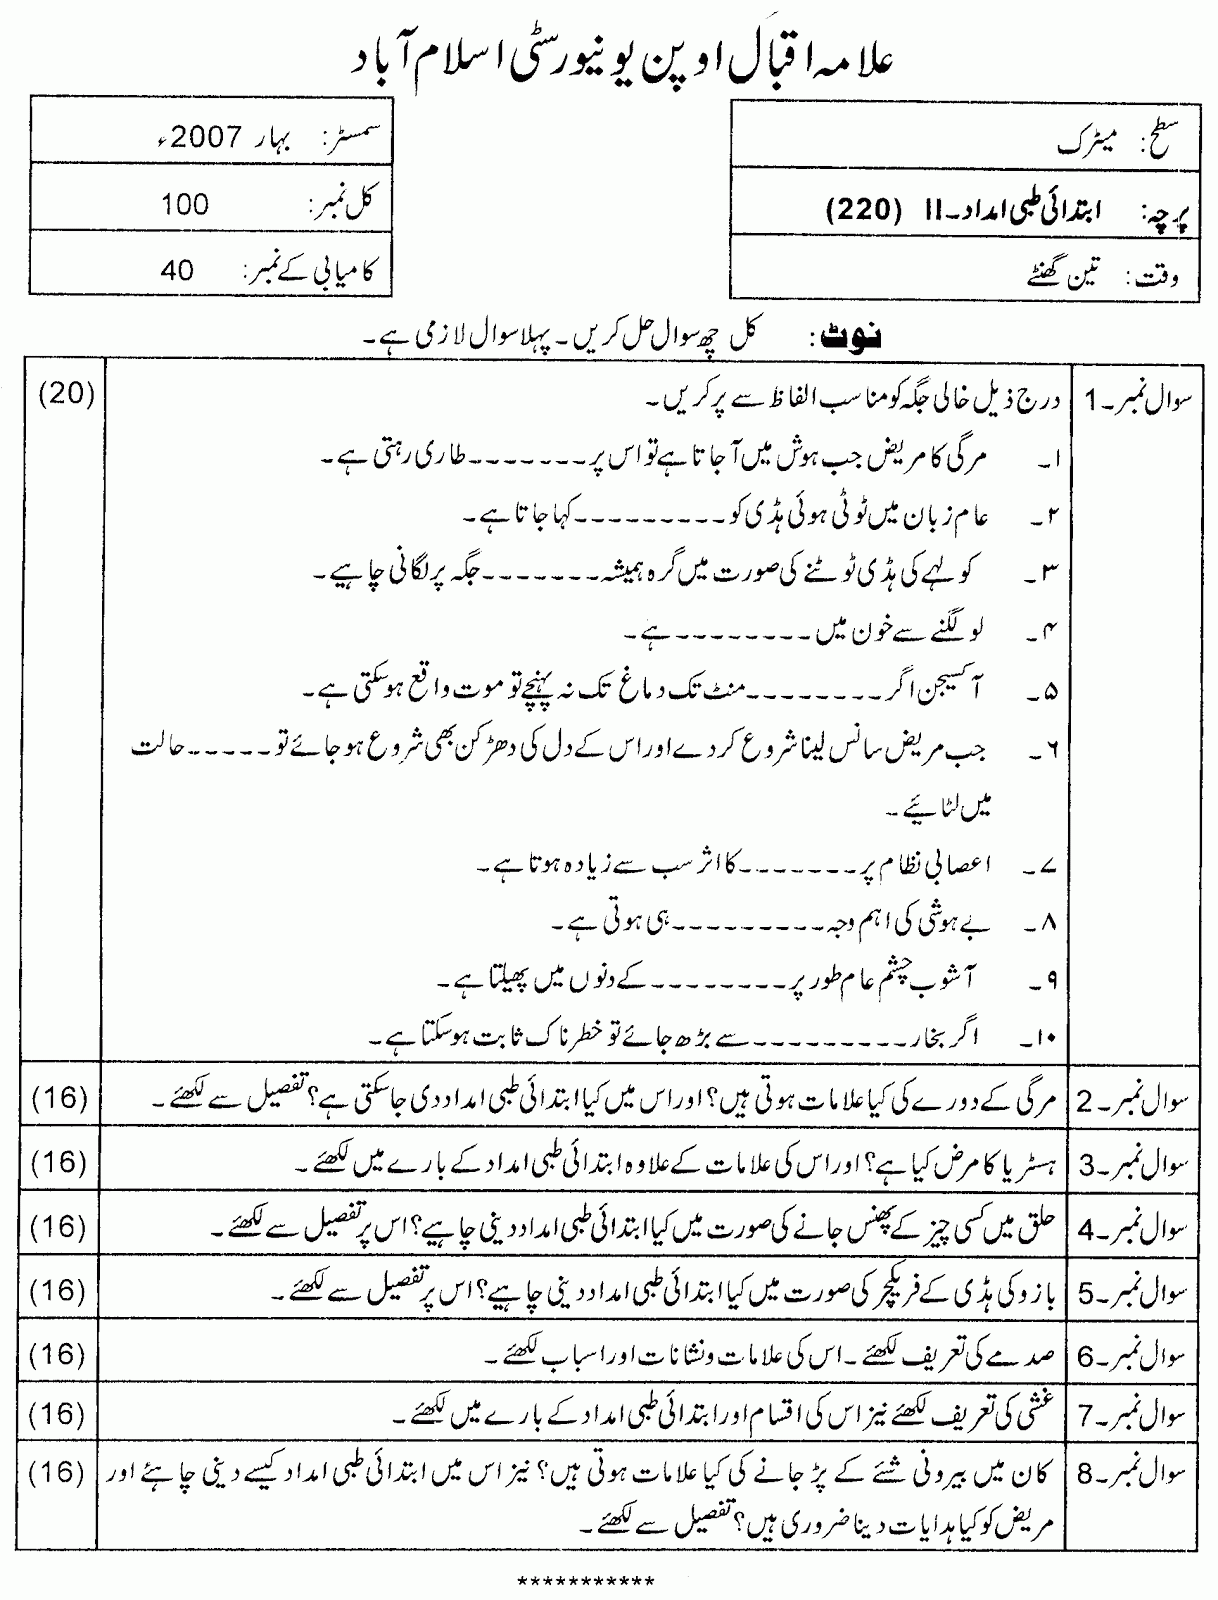 علامہ اقبال اوپن یونیورسٹی اسلام آباد
سطح: میٹرک
پرچہ: ابتدائی طبی امداد۔II (220)
وقت: تین گھنٹے
سمسٹر: بہار 2007ء
کل نمبر: 100
کامیابی کے نمبر: 40
نوٹ: کل چھ سوال حل کریں۔ پہلا سوال لازمی ہے۔
سوال نمبر۔1 درج ذیل خالی جگہ کو مناسب الفاظ سے پر کریں۔ (20)
۱۔ مرگی کا مریض جب ہوش میں آ جاتا ہے تو اس پر------- طاری رہتی ہے۔
۲۔ عام زبان میں ٹوٹی ہوئی ہڈی کو---------کہا جاتا ہے۔
۳۔ کولہے کی ہڈی ٹوٹنے کی صورت میں گرہ ہمیشہ-------جگہ پر لگانی چاہیے۔
۴۔ لو لگنے سے خون میں --------ہے۔
۵۔ آکسیجن اگر --------منٹ تک دماغ تک نہ پہنچے تو موت واقع ہوسکتی ہے۔
۶۔ جب مریض سانس لینا شروع کر دے اور اس کے دل کی دھڑکن بھی شروع ہو جائے تو-----حالت
میں لٹائیے۔
۷۔ اعصابی نظام پر-------کا اثر سب سے زیادہ ہوتا ہے۔
۸۔ بے ہوشی کی اہم وجہ---------ہی ہوتی ہے۔
۹۔ آشوب چشم عام طور پر--------کے دنوں میں پھیلتا ہے۔
۱۰۔ اگر بخار----------سے بڑھ جائے تو خطرناک ثابت ہوسکتا ہے۔
سوال نمبر۔2 مرگی کے دورے کی کیا علامات ہوتی ہیں؟ اور اس میں کیا ابتدائی طبی امداد دی جا سکتی ہے؟ تفصیل سے لکھئے۔ (16)
سوال نمبر۔3 ہسٹریا کا مرض کیا ہے؟ اور اس کی علامات کے علاوہ ابتدائی طبی امداد کے بارے میں لکھئے۔ (16)
سوال نمبر۔4 حلق میں کسی چیز کے پھنس جانے کی صورت میں کیا ابتدائی طبی امداد دینی چاہیے؟ اس پر تفصیل سے لکھئے۔ (16)
سوال نمبر۔5 بازو کی ہڈی کے فریکچر کی صورت میں کیا ابتدائی طبی امداد دینی چاہیے؟ اس پر تفصیل سے لکھئے۔ (16)
سوال نمبر۔6 صدمے کی تعریف لکھئے۔ اس کی علامات و نشانات اور اسباب لکھئے۔ (16)
سوال نمبر۔7 غشی کی تعریف لکھئے نیز اس کی اقسام اور ابتدائی طبی امداد کے بارے میں لکھئے۔ (16)
سوال نمبر۔8 کان میں بیرونی شئے کے پڑ جانے کی کیا علامات ہوتی ہیں؟ نیز اس میں ابتدائی طبی امداد کیسے دینی چاہئے اور (16)
مریض کو کیا ہدایات دینا ضروری ہیں؟ تفصیل سے لکھئے۔
***********